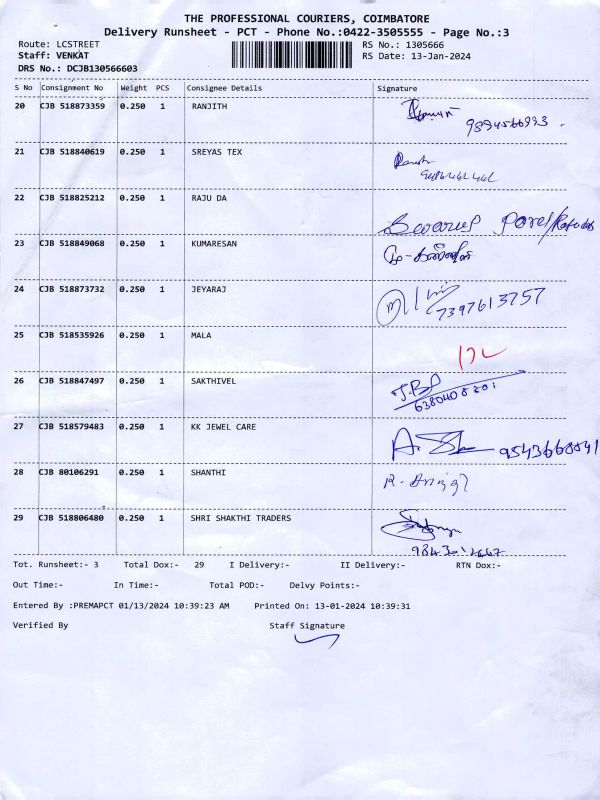 THE PROFESSIONAL COURIERS, COIMBATORE
Delivery Runsheet - PCT - Phone No.:0422-3505555 - Page No.:3
Route: LCSTREET RS No.: 1305666
Staff: VENKAT RS Date: 13-Jan-2024
DRS No.: DCJB130566603
S No Consignment No Weight PCS Consignee Details Signature
20 CJB 518873359 0.250 1 RANJITH
21 CJB 518840619 0.250 1 SREYAS TEX
22 CJB 518825212 0.250 1 RAJU DA
23 CJB 518849068 0.250 1 KUMARESAN
24 CJB 518873732 0.250 1 JEYARAJ
7397613757
25 CJB 518535926 0.250 1 MALA
26 CJB 518847497 0.250 1 SAKTHIVEL
27 CJB 518579483 0.250 1 KK JEWEL CARE
9543668841
28 CJB 80106291 0.250 1 SHANTHI
29 CJB 518806480 0.250 1 SHRI SHAKTHI TRADERS
Tot. Runsheet:- 3 Total Dox:- 29 I Delivery:- II Delivery:- RTN Dox:-
Out Time:- In Time:- Total POD:- Delvy Points:-
Entered By :PREMAPCT 01/13/2024 10:39:23 AM Printed On: 13-01-2024 10:39:31
Verified By Staff Signature